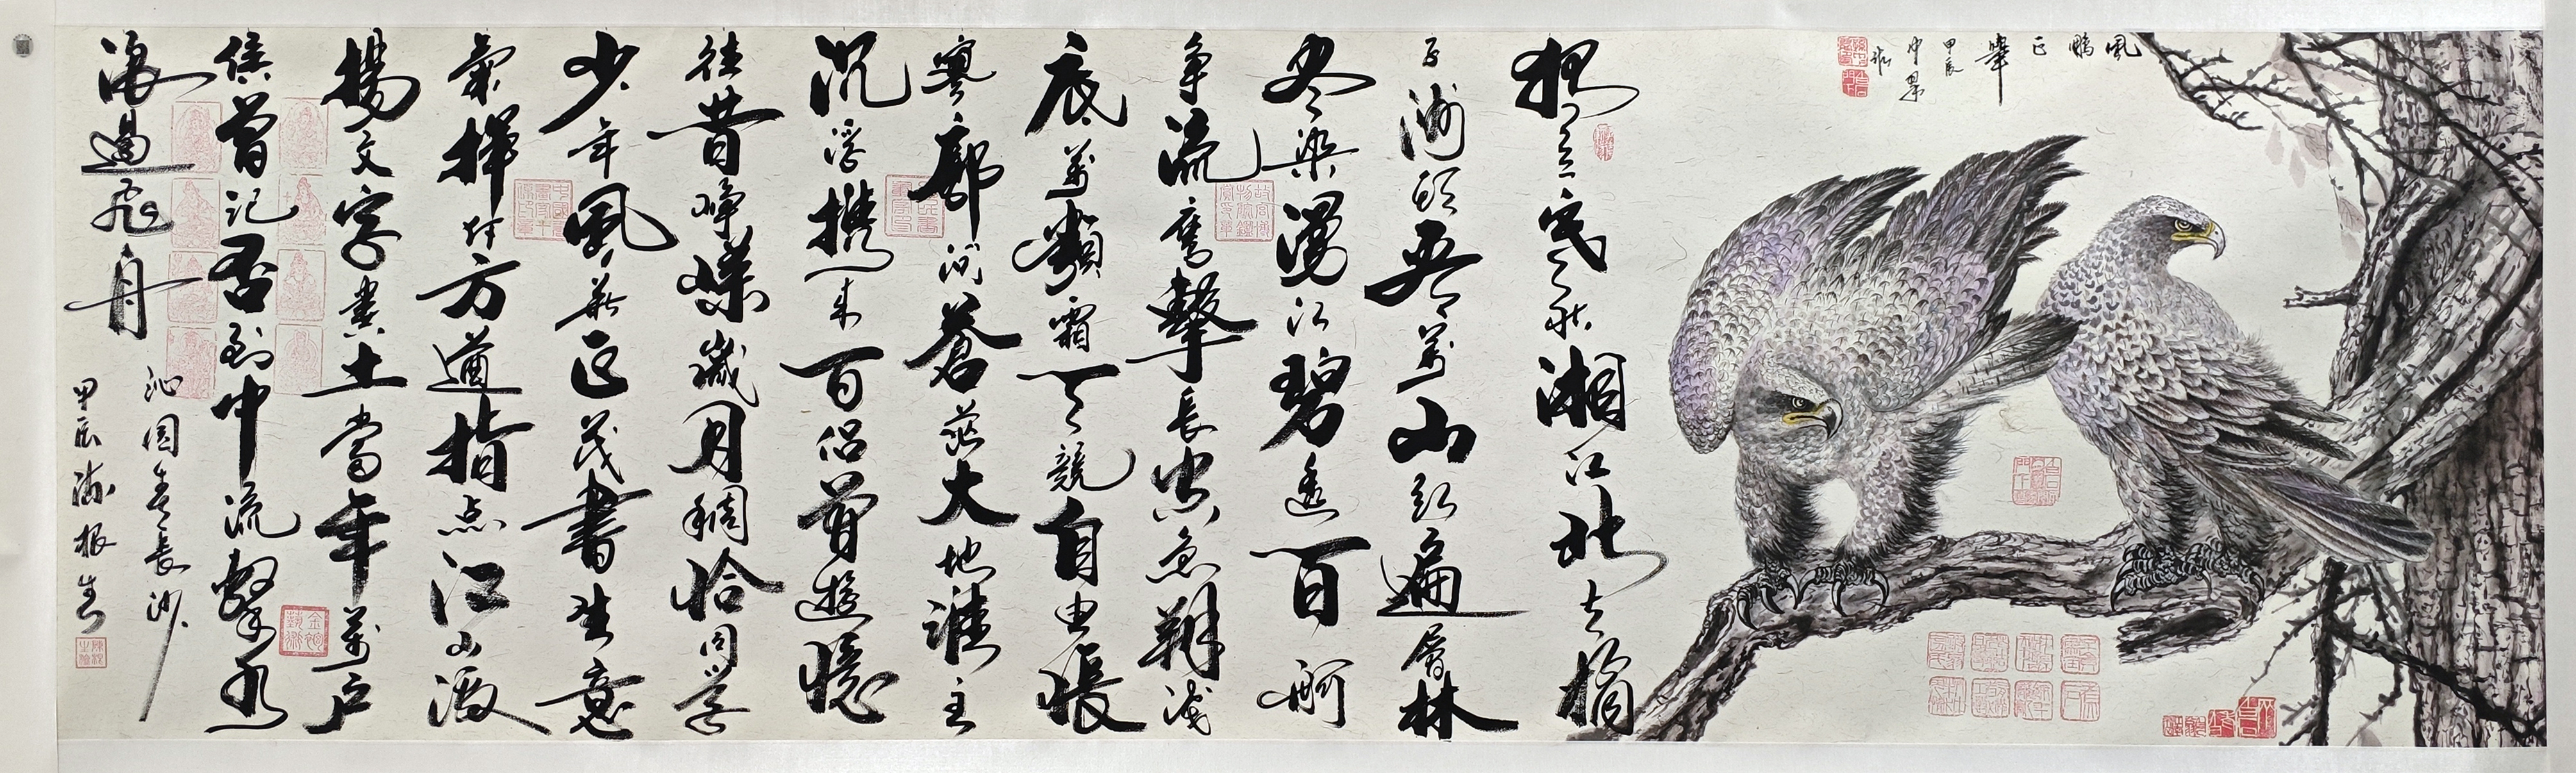 風鵬正舉
甲辰
独立寒秋湘江北去橘
子洲頭看萬山红遍層林
尽染漫江碧透百舸
争流鹰擊長空魚翔淺
底萬類霜天競自由悵
寥廓问蒼茫大地誰主
沉浮携来百侣曾遊憶
往昔崢嶸歲月稠恰同學
少年風華正茂書生意
氣揮斥方遒指点江山激
揚文字糞土當年萬户
侯曾记否到中流擊水
浪遏飛舟
沁園春長沙
甲辰